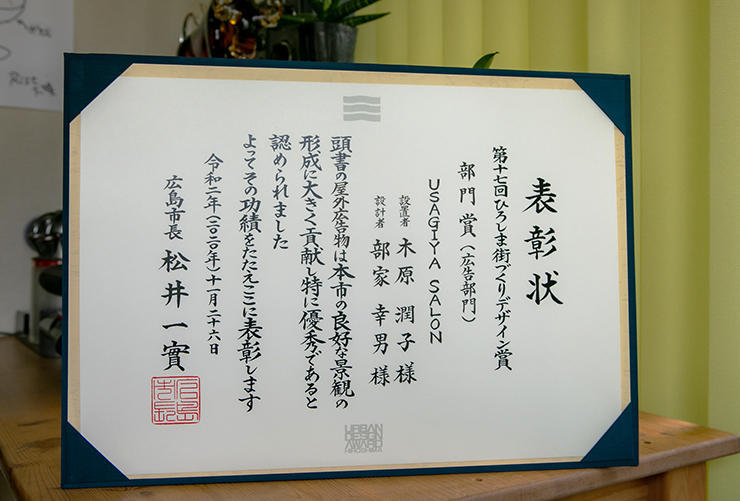 表彰状
第十七回ひろしま街づくりデザイン賞
部門賞(広告部門)
USAGIYA SALON
設置者 木原 潤子 様
設計者 部家 幸男 様
頭書の屋外広告物は本市の良好な景観の
形成に大きく貢献し特に優秀であると
認められました
よってその功績をたたえここに表彰します
令和二年(二〇二〇年)十一月二十六日
広島市長 松井一實
広島市長
URBAN
DESIGN
AWARD
HIROSHIMA